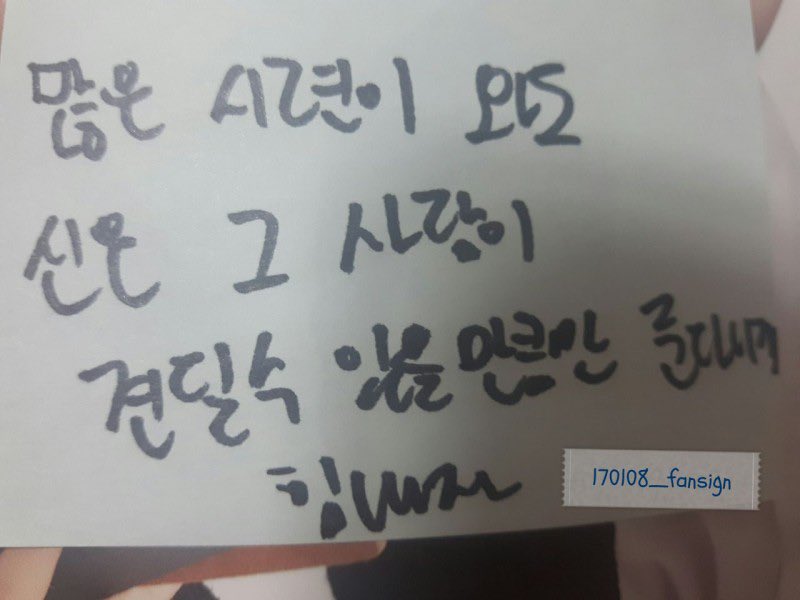 많은 시련이 와도
신은 그 사람이
견딜수 있을만큼만 준다시며
힘내자
170108_fansign